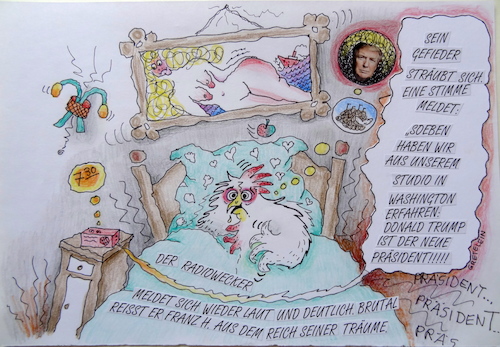 SEIN
GEFIEDER
STRÄUBT SICH.
EINE STIMME
MELDET:
„SOEBEN
HABEN WIR
AUS UNSEREM
STUDIO IN
WASHINGTON
ERFAHREN:
DONALD TRUMP
IST DER NEUE
PRÄSIDENT!!!!!
PRÄSIDENT...
PRÄSIDENT
PRÄS
7.30
DER RADIOWECKER
MELDET SICH WIEDER LAUT UND DEUTLICH. BRUTAL
REISST ER FRANZ H. AUS DEM REICH SEINER TRÄUME.